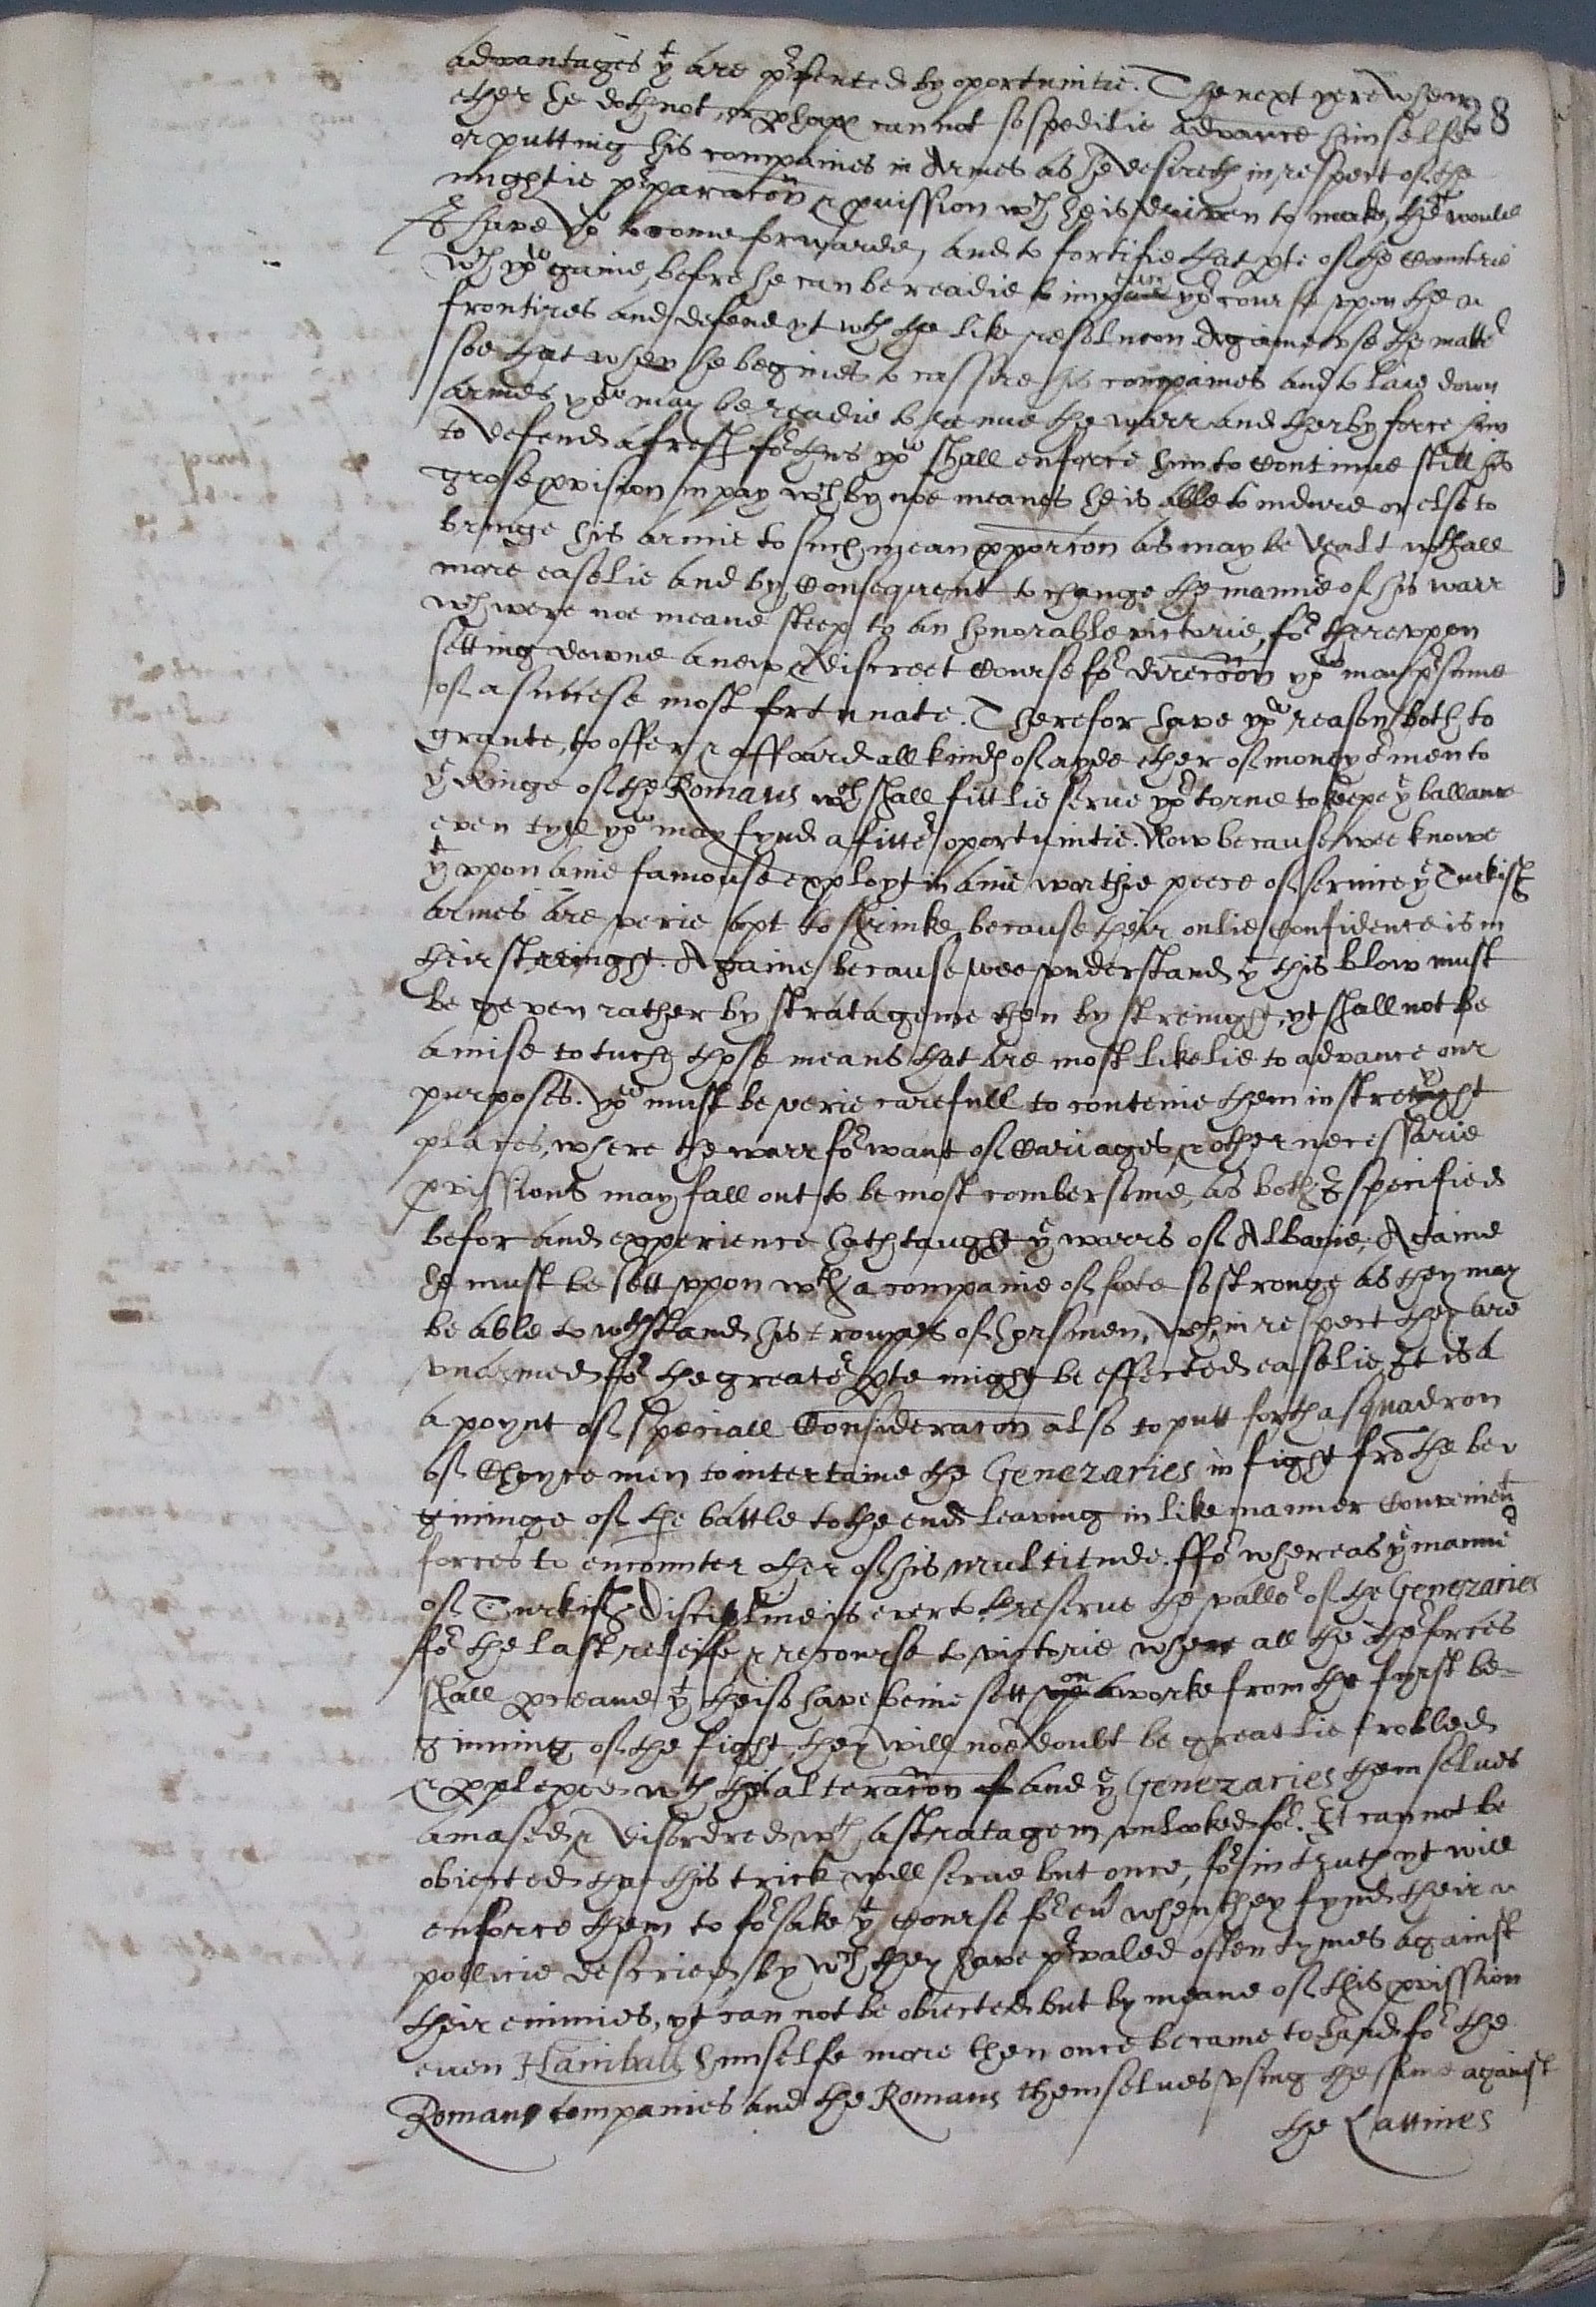 advantages yt are pr̃sented by oportunitie. The next yere when
28
ether he doth not, or phaps cannot so speditie advance himselfe
or putting his companies in Armes as he desireth in respect of the
mightie pr̃paracõn & pvission wch he is driven to make, he would
have you to come forwarde, and to fortifie that pte of the Countrie
wch you gaine, before he can be readie to yor course upon the
frontires and defend yt wth the like resolucon. Againe use the mattr
soe that when he begines to cassire his companies and to laie down
armes you may be readie to renue the warr and therby force him
to defend afresh for thus you shall enforce him to Continue still his
grose pvision in pay wch by noe meanes he is able to indure or else to
bringe his armie to such mean pporcõn as may be dealt wthall
more easelie and by Consequent to change the manner of his warr
wch were noe meane steep to an honorable victorie, for therevpon
setting downe a new & discreet Course for direccõn you may pr̃sume
of a suttese most fortunate. Therefor have you reason both to
grante, to offer & affoard all kinds of ayde ether of mony or men to
ye kinge of the Romans wch shall fittlie serue yor torne to keepe ye ballance
even tyll you may fynd a fitter oportunitie. Now because wee knowe
yt vpon anie famouse exployt in anie worthie peece of service ye Turkish
armes are verie apt to shrinke because their onlie Confidence is in
their streinght. Againe because wee vnderstand yt this blow must
be geven rather by stratageme then by streinght, yt shall not be
amise to tuch those means that are most likelie to advance our
purposes. you must be verie carefull to conteine them in streight
places, where the warr for want of Cariages & other necessarie
pvissions may fall out to be most combersome, as both is specified
befor and experience hath taught ye warrs of Albanie, Againe
he must be sett vpon wth a companie of foote so stronge as they may
be able to wthstand his troupes of horsmen, wch in respect they are
vnarmed for the greater pte might be effected easelie, It is a
a poynt of speciall Consideracon also to putt forth a squadron
of Choyce men to intertaine the Genezaries in fight frõ the be
gininge of the battle to the end leaving in like manner Convenient
forces to encounter other of his multitude. ffor whereas ye manner
of Turkish Discipline is ever to preserue the vallor of the Genezaries
for the last releife & recourse to victorie when all the other forces
shall pceaue yt theise have beine sett on aworke from the fyrst be=
ginning of the fight, they will noe doubt be greatlie trobled
& pplexed wth this alteracõn and ye Genezaries themselues
amased & disordred wth a stratagem vnlooked for. It cannot be
obiected that this trick will serue but once, for in truth yt will
enforce them to forsake ye Course for eur when they fynd their
pollicie descried by wch they have pr̃valed often tymes against
their enimies, yt can not be obiected but by meane of this pvission
euen Haniball himselfe more then once became to hard for the
Romans companies and the Romans themselues vsing the same against
the Lattines